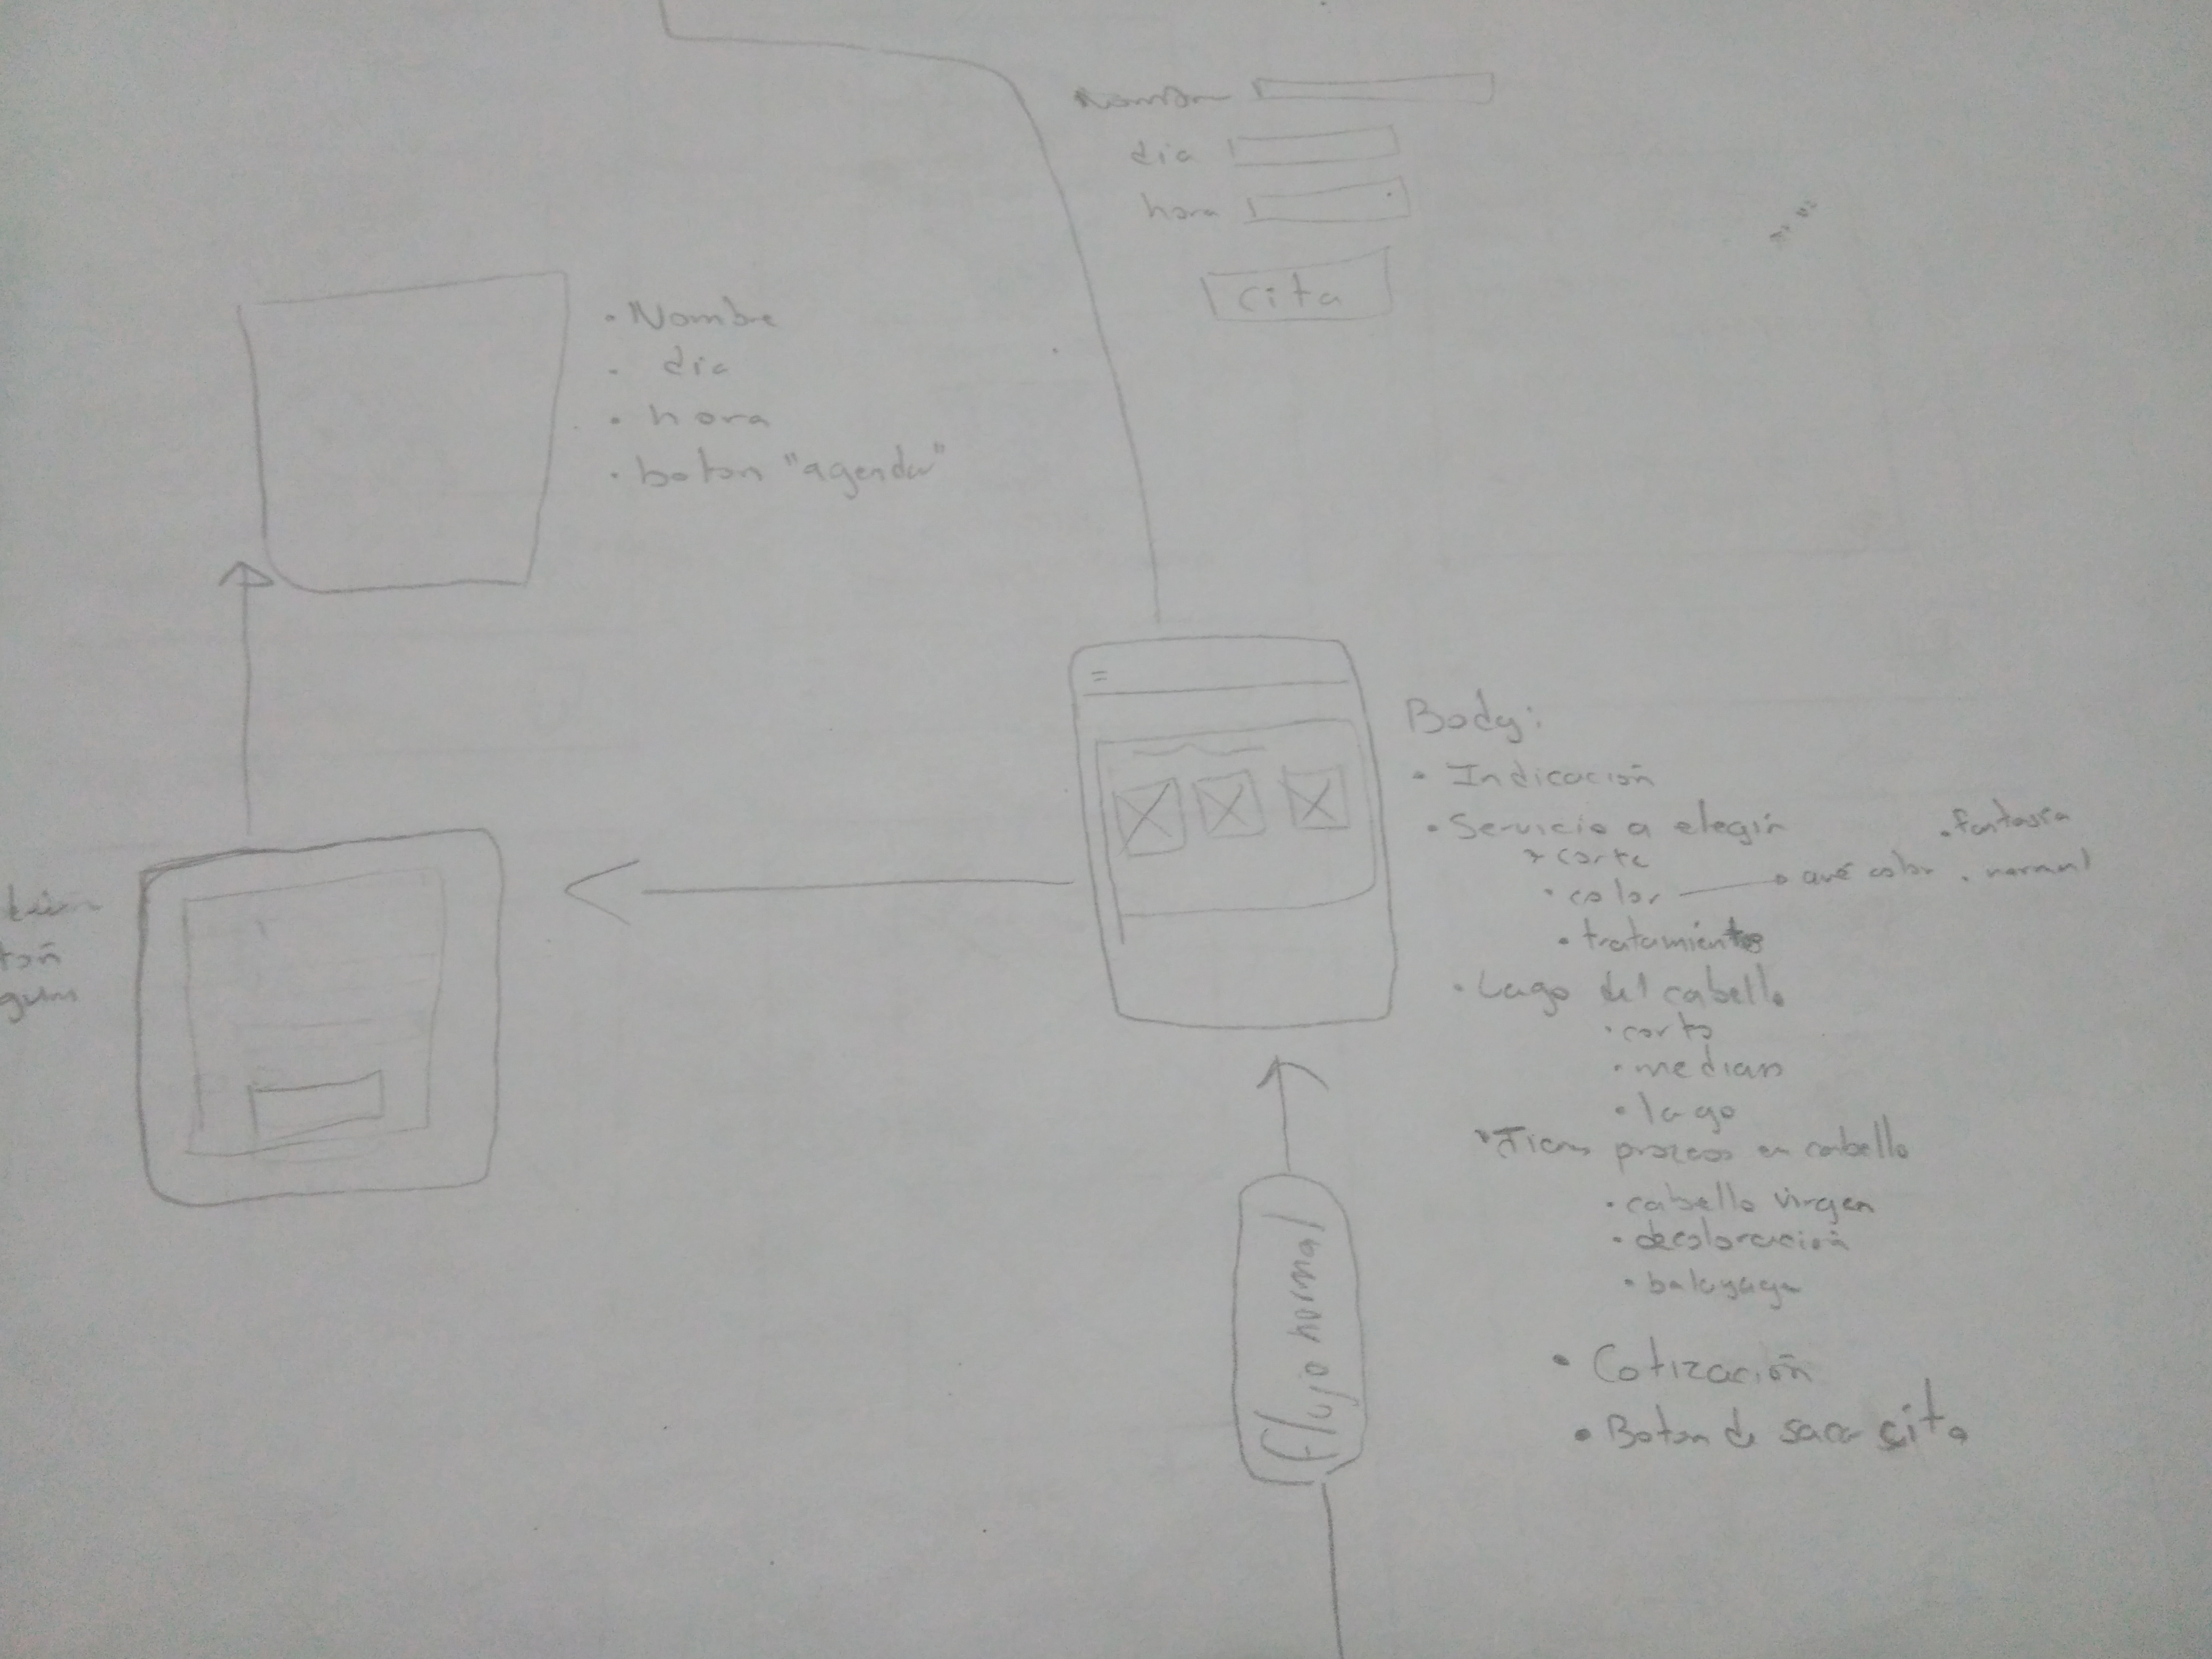 Nombre
dia
hora
cita
• Nombre
- dia
• hora
• boton "agendar"
Body:
• Indicación
• Servicio a elegir
• corte
• color → qué color
• fantasia
• normal
• tratamientos
• Lago del cabello
• corto
• mediano
• lago
• Tienes procesos en cabello
• cabello virgen
• decoloración
• balayage
• Cotización
• Boton de saca cita
flujo normal